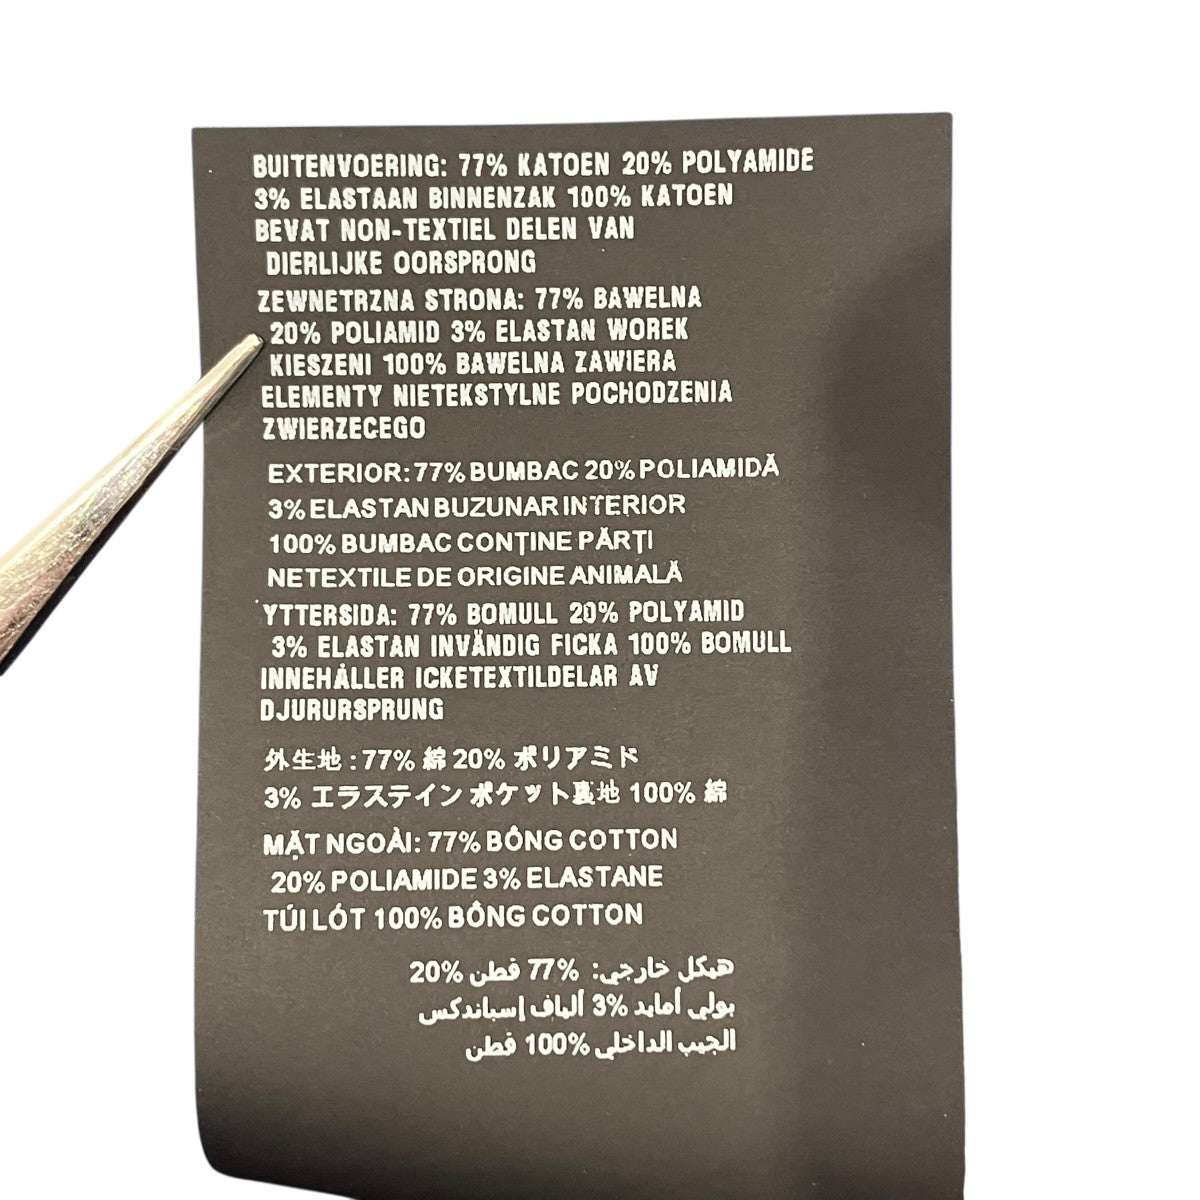 BUITENVOERING: 77% KATOEN 20% POLYAMIDE
3% ELASTAAN BINNENZAK 100% KATOEN
BEVAT NON-TEXTIEL DELEN VAN
DIERLIJKE OORSPRONG
ZEWNETRZNA STRONA: 77% BAWELNA
20% POLIAMID 3% ELASTAN WOREK
KIESZENI 100% BAWELNA ZAWIERA
ELEMENTY NIETEKSTYLNE POCHODZENIA
ZWIERZECEGO
EXTERIOR: 77% BUMBAC 20% POLIAMIDĂ
3% ELASTAN BUZUNAR INTERIOR
100% BUMBAC CONȚINE PĂRȚI
NETEXTILE DE ORIGINE ANIMALĂ
YTTERSIDA: 77% BOMULL 20% POLYAMID
3% ELASTAN INVÄNDIG FICKA 100% BOMULL
INNEHÅLLER ICKETEXTILDELAR AV
DJURURSPRUNG
外生地 : 77% 綿 20% ポリアミド
3% エラステイン ポケット裏地 100% 綿
MẶT NGOÀI: 77% BÔNG COTTON
20% POLIAMIDE 3% ELASTANE
TÚI LÓT 100% BÔNG COTTON
هيكل خارجي: 77% قطن 20%
بولي أمايد 3% ألياف إسباندكس
الجيب الداخلي 100% قطن